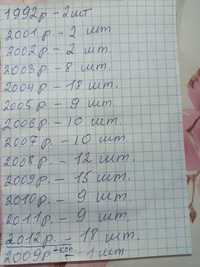 1992р - 2 шт
2001р. - 2 шт
2002р - 2 шт.
2003р - 8 шт.
2004р - 18 шт.
2005р - 9 шт.
2006р - 10 шт.
2007р. - 10 шт.
2008р - 12 шт.
2009р. - 15 шт.
2010р. - 9 шт.
2011р - 9 шт.
2012р. - 18 шт.
2009р - 1 шт.